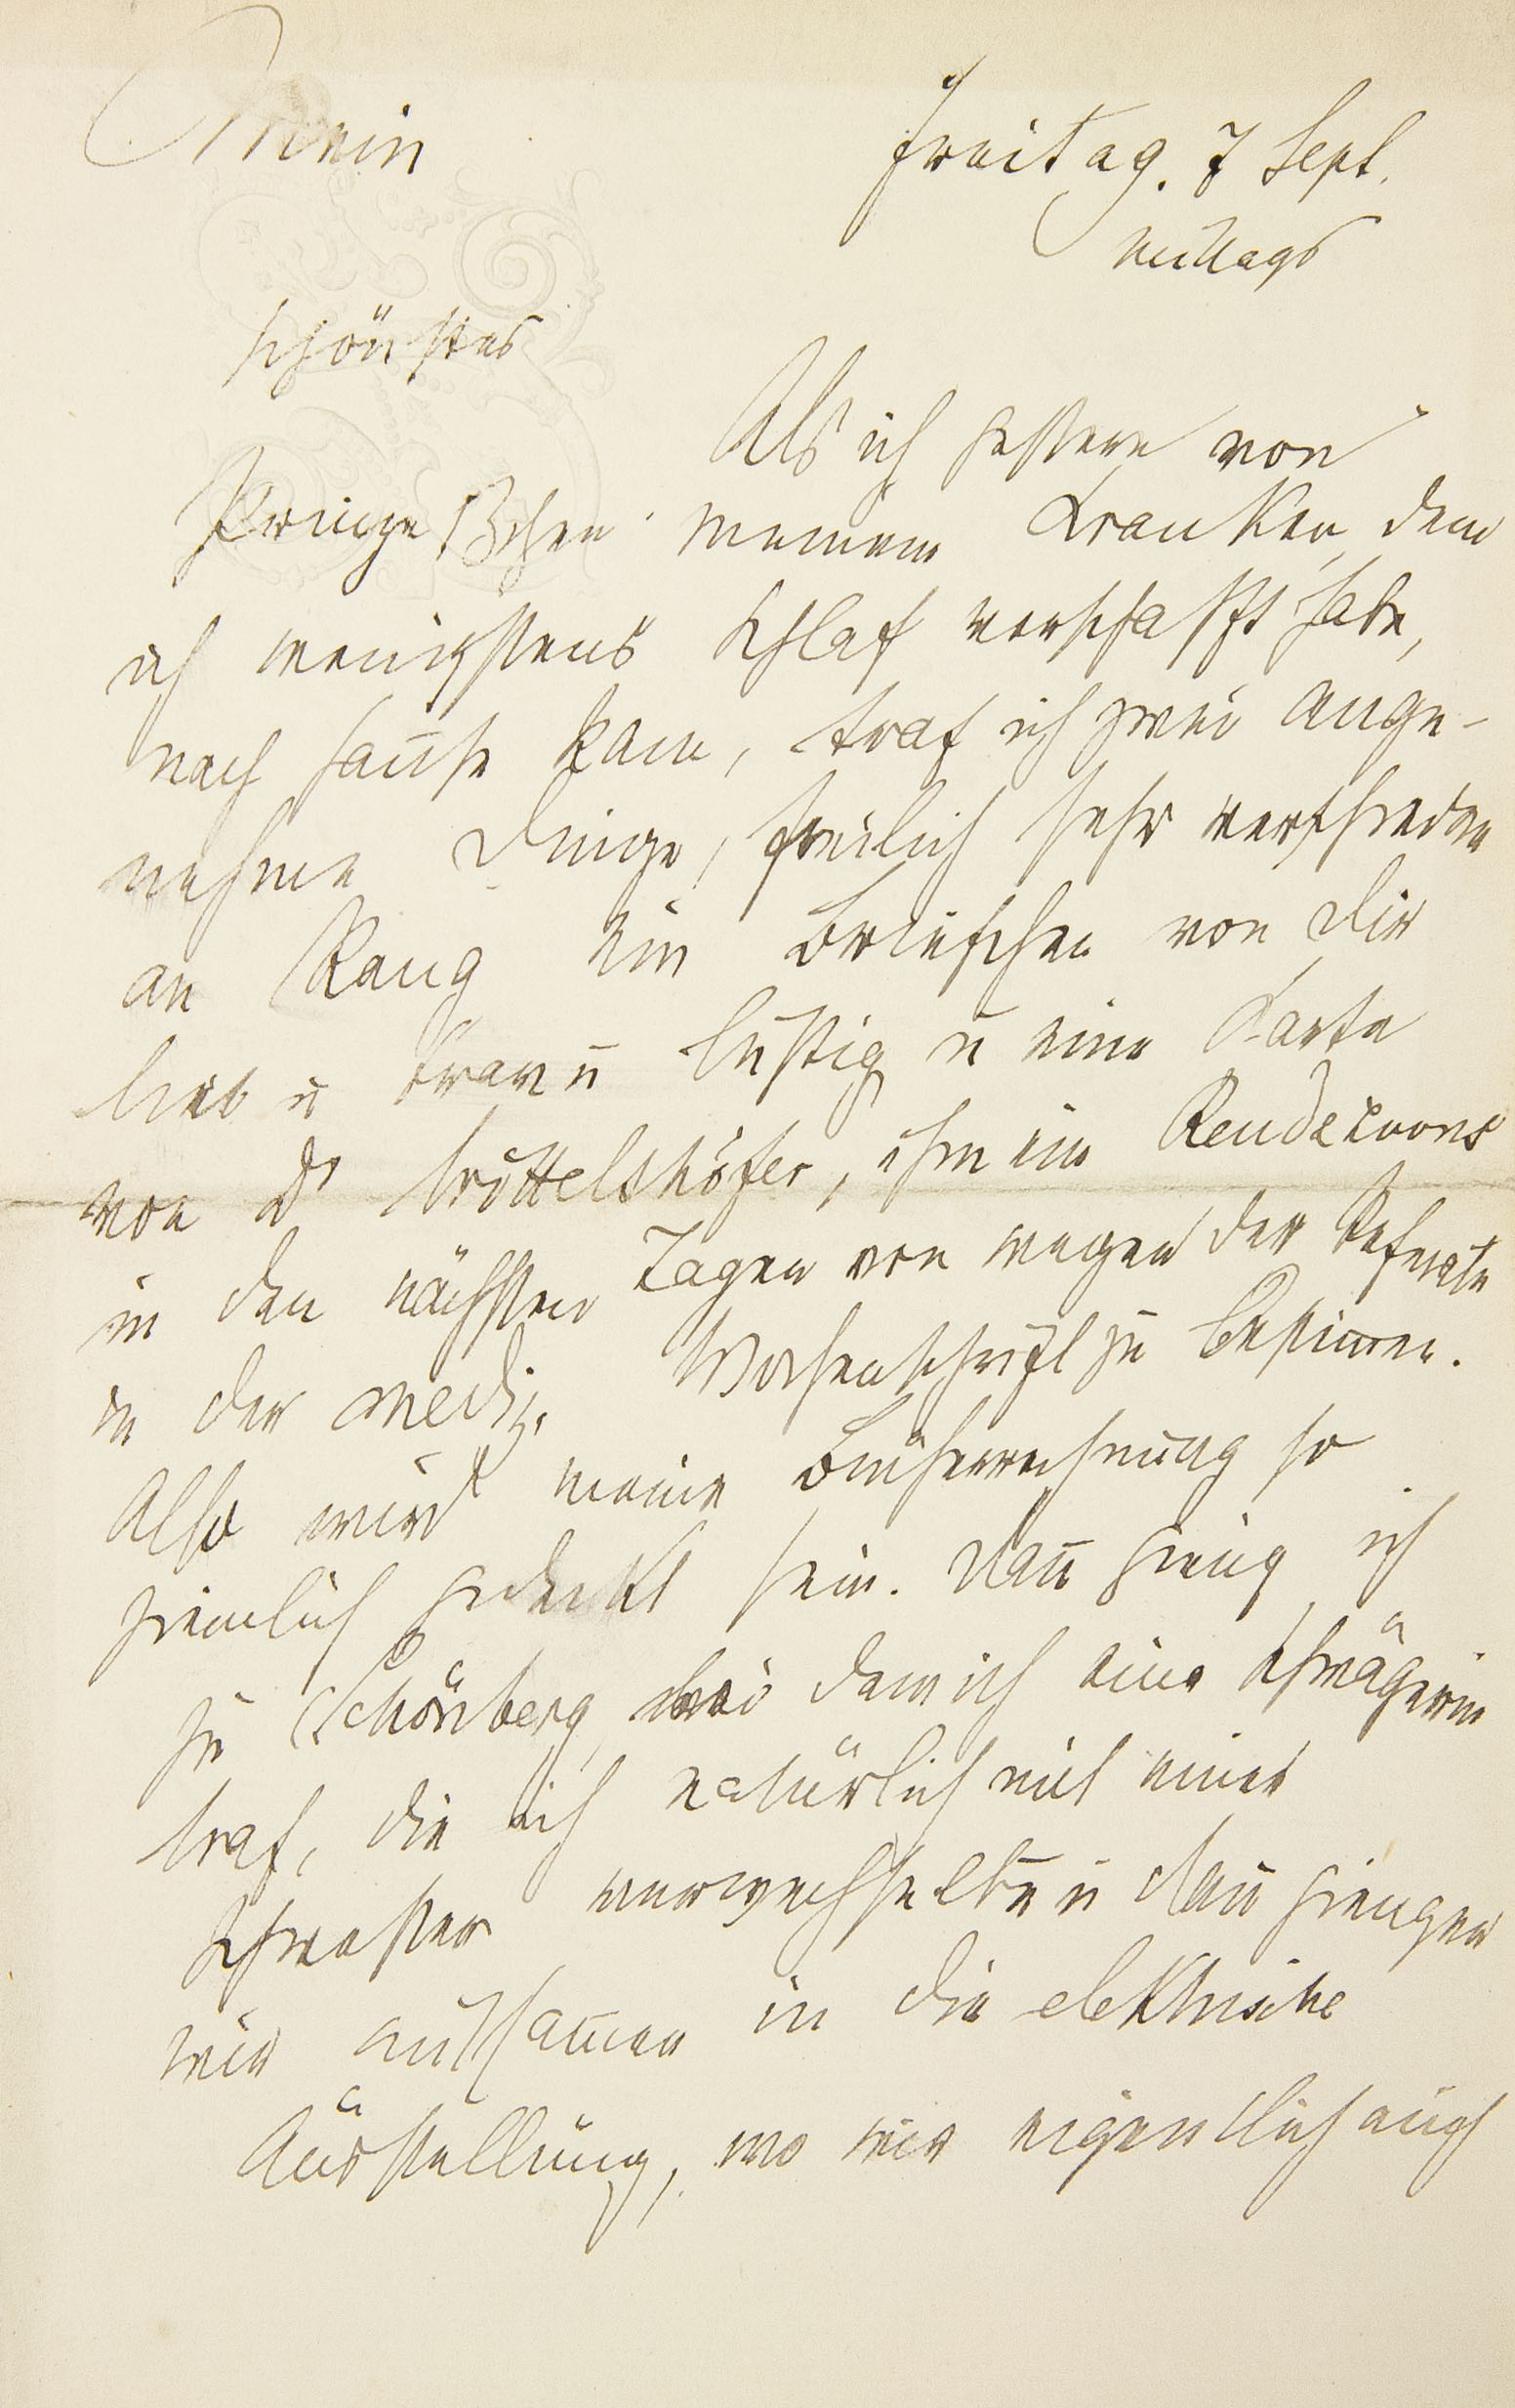 Freitag. 7 Sept.
mittags
Mein
schönstes
Prinzeßchen
Als ich gestern von
meinem Kranken, dem
ich wenigstens Schlaf verschafft habe,
nach Hause kam, traf ich zwei ange-
nehme Dinge, freilich sehr verschieden
an Rang ein Briefchen von Dir
lieb u brav u lustig u eine Karte
von Dr Bröttelshöfer, ihm ein Rendezvous
in den nächsten Tagen von wegen der Referate
in der mediz. Wochenschrift zu bestim̅en.
Also wird meine Bücherrechnung so
ziemlich gedeckt sein. Dan̅ gieng ich
zu Schönberg, bei dem ich eine Schwägerin
traf, die ich natürlich mit einer
Schwester verwechselte u dan̅ giengen
wir mitsam̅en in die elektrische
Ausstellung, wo wir eigentlich auch